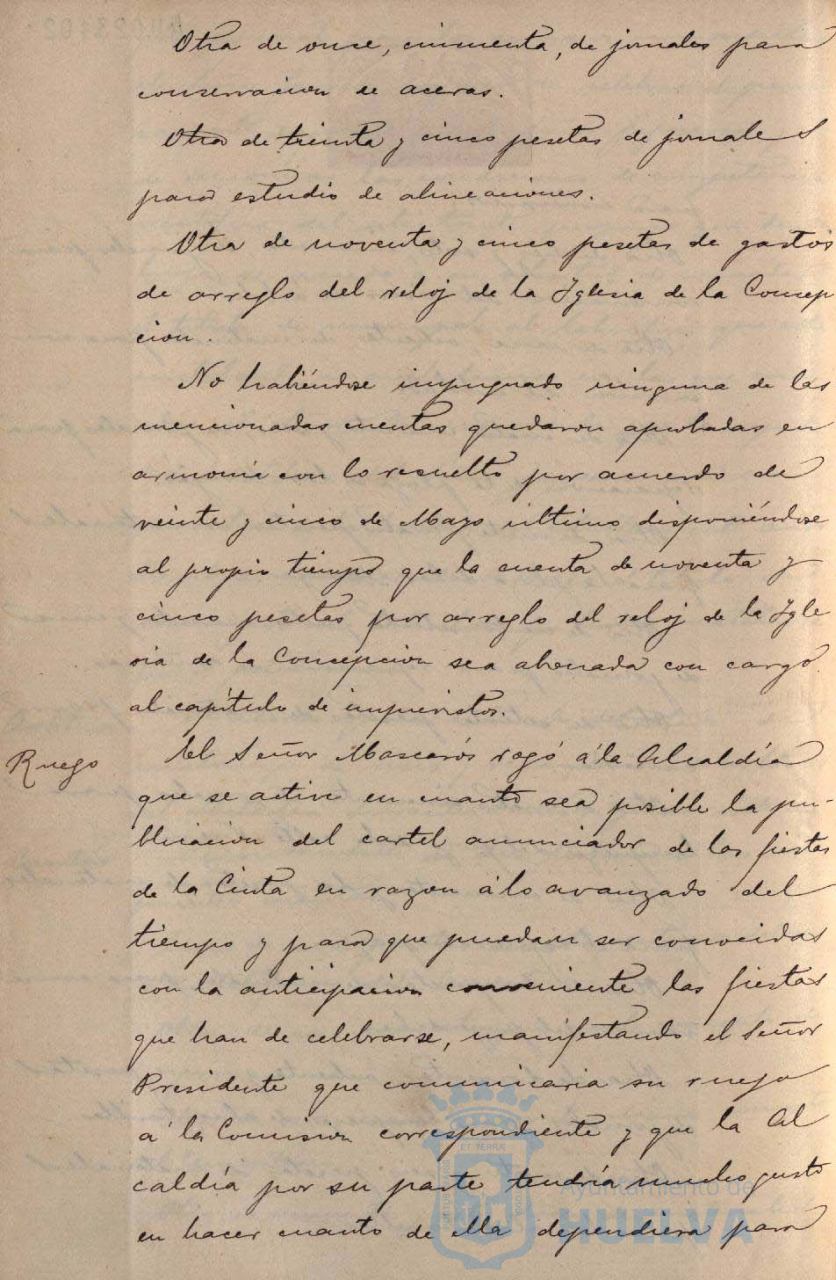 Otra de once, cincuenta, de jornales para
conservacion de aceras.
Otra de treinta y cinco pesetas de jornales
para estudio de alineaciones.
Otra de noventa y cinco pesetas de gastos
de arreglo del reloj de la Iglesia de la Concep
cion.
No habiéndose impugnado ninguna de las
mencionadas cuentas quedaron aprobadas en
armonia con lo resuelto por acuerdo de
veinte y cinco de Mayo último disponiéndose
al propio tiempo que la cuenta de noventa y
cinco pesetas por arreglo del reloj de la Igle
sia de la Concepcion sea abonada con cargo
al capítulo de imprevistos.
Ruego
El Señor Mascarós rogó á la Alcaldía
que se active en cuanto sea posible la pu-
blicacion del cartel anunciador de las fiestas
de la Cinta en razon á lo avanzado del
tiempo y para que puedan ser conocidas
con la anticipacion conveniente las fiestas
que han de celebrarse, manifestando el Señor
Presidente que comunicaria su ruego
á la Comision correspondiente y que la Al
caldía por su parte tendría mucho gusto
en hacer cuanto de ella dependiera para
Ayuntamiento de
HUELVA